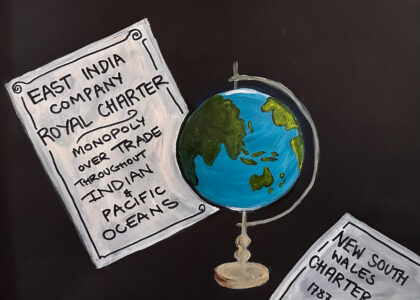 EAST INDIA
COMPANY
ROYAL CHARTER
MONOPOLY
OVER TRADE
THROUGHOUT
INDIAN
&
PACIFIC
OCEANS
NEW SOUTH
WALES
CHARTER
1787